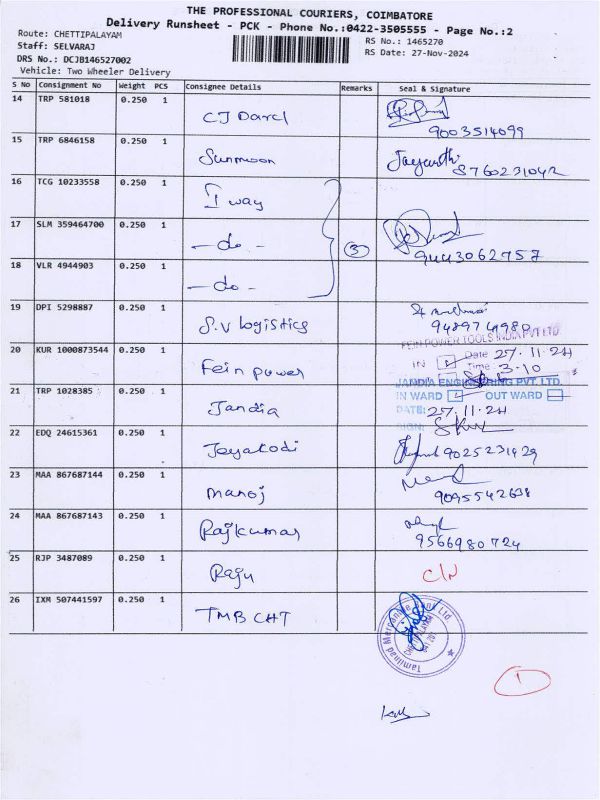 THE PROFESSIONAL COURIERS, COIMBATORE
Delivery Runsheet - PCK - Phone No.:0422-3505555 - Page No.:2
Route: CHETTIPALAYAM
Staff: SELVARAJ
DRS No.: DCJB146527002
Vehicle: Two Wheeler Delivery
RS No.: 1465270
RS Date: 27-Nov-2024
S No Consignment No Weight PCS Consignee Details Remarks Seal & Signature
14 TRP 581018 0.250 1 CJ Darcl
9003514099
15 TRP 6846158 0.250 1 Sunmoon Jayanth
8760231042
16 TCG 10233558 0.250 1 I way
17 SLM 359464700 0.250 1 - do - 3
9443062757
18 VLR 4944903 0.250 1 - do -
19 DPI 5298887 0.250 1 S.V logistics
9489741980
FEIN POWER TOOLS INDIA PVT LTD
20 KUR 1000873544 0.250 1 Fein power
IN Date 27.11.24
Time 3.10
JANDIA ENGINEERING PVT. LTD.
21 TRP 1028385 0.250 1 Jandia
IN WARD OUT WARD
DATE: 27.11.24
SIGN:
22 EDQ 24615361 0.250 1 Jeyakodi 9025231429
23 MAA 867687144 0.250 1 manoj
9095542638
24 MAA 867687143 0.250 1 Rajkumar
9566980724
25 RJP 3487089 0.250 1 Raju C/N
26 IXM 507441597 0.250 1 TMB CHT
Tamilnad Mercantile Bank Ltd
CHETTIPALAYAM
1